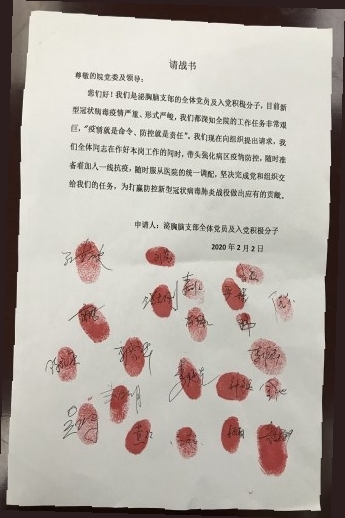 请战书
尊敬的院党委及领导：
您们好！我们是泌胸脑支部的全体党员及入党积极分子，目前新
型冠状病毒疫情严重、形式严峻，我们都深知全院的工作任务非常艰
巨，“疫情就是命令、防控就是责任”。我们现在向组织提出请求，我
们全体同志在作好本岗工作的同时，带头强化病区疫情防控，随时准
备着加入一线抗疫，随时服从医院的统一调配，坚决完成党和组织交
给我们的任务，为打赢防控新型冠状病毒肺炎战役做出应有的贡献。
申请人：泌胸脑支部全体党员及入党积极分子
2020 年 2 月 2 日